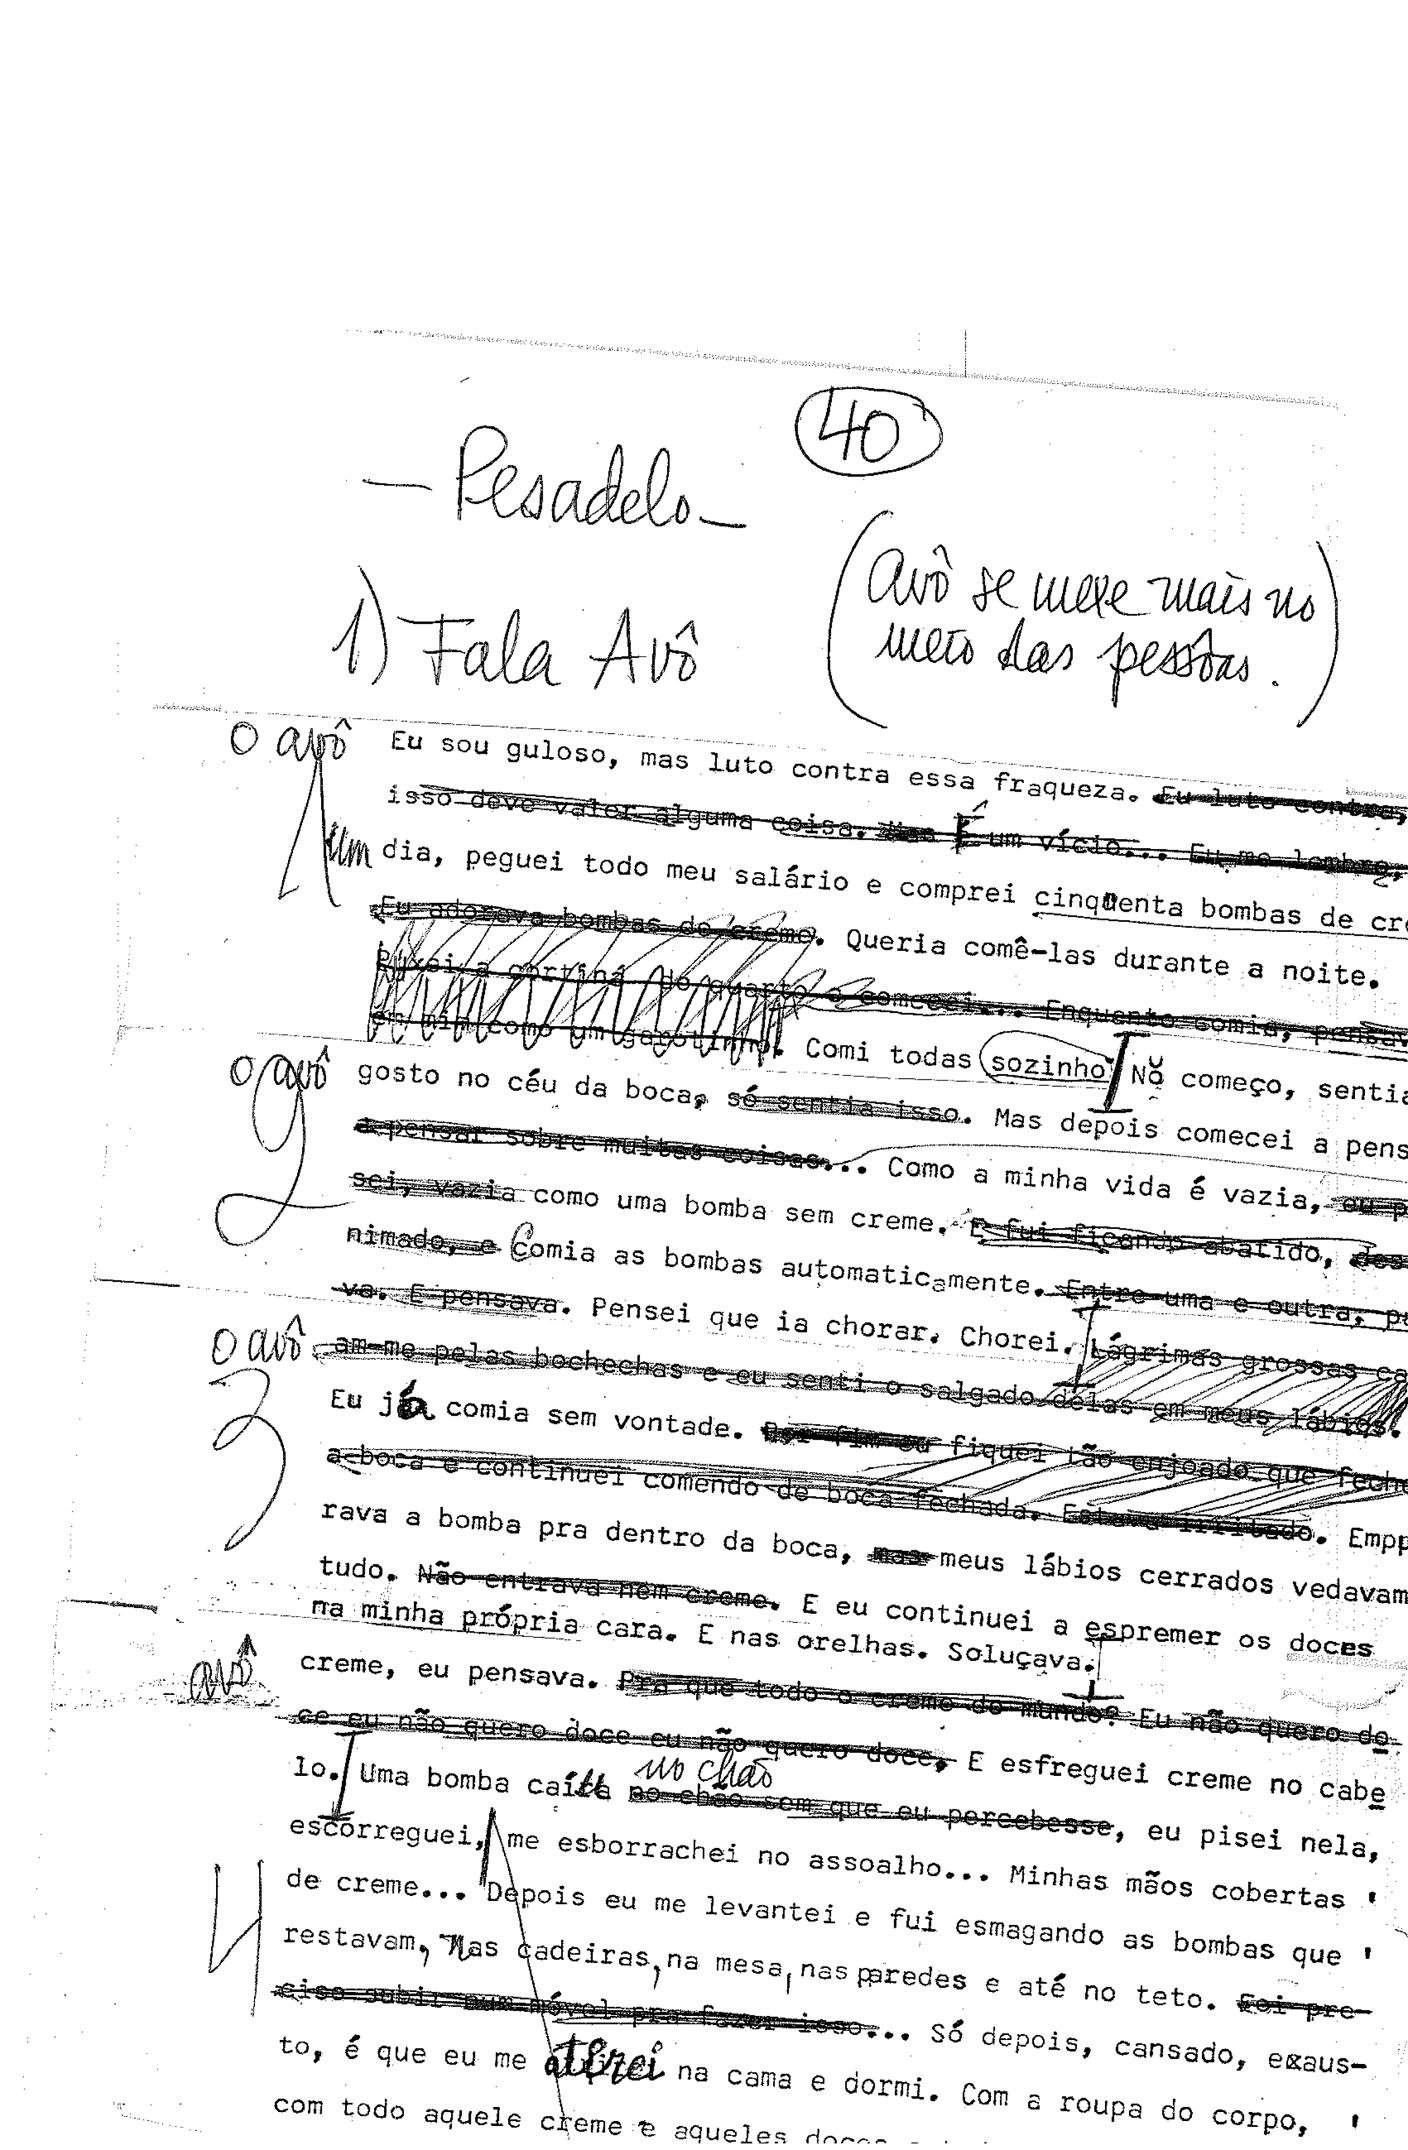 40
- Pesadelo -
(avô se mexe mais no
meio das pessôas.)
1) Fala Avô
o avô Eu sou guloso, mas luto contra essa fraqueza. Eu luto contra,
isso deve valer alguma coisa. Mas É um vício... Eu me lembro,
1 um dia, peguei todo meu salário e comprei cinquenta bombas de cre
Eu adorava bombas de creme. Queria comê-las durante a noite.
Puxei a cortina do quarto e comecei... Enquanto comia, pensav
em mim como um garotinho. Comi todas sozinho. No começo, sentia
o avô gosto no céu da boca, só sentia isso. Mas depois comecei a pens
2 a pensar sobre muitas coisas... Como a minha vida é vazia, eu p
sei, vazia como uma bomba sem creme. E fui ficando abatido, des
nimado, e Comia as bombas automaticamente. Entre uma e outra, pe
va. E pensava. Pensei que ia chorar. Chorei. Lágrimas grossas ca
o avô am-me pelas bochechas e eu senti o salgado delas em meus lábios.
3 Eu já comia sem vontade. Por fim eu fiquei tão enjoado que feche
a boca e continuei comendo de boca fechada. Estava irritado. Empp
rava a bomba pra dentro da boca, mas meus lábios cerrados vedavam
tudo. Não entrava nem creme. E eu continuei a espremer os doces
na minha própria cara. E nas orelhas. Soluçava.
avô creme, eu pensava. Pra que todo o creme do mundo? Eu não quero do
ce eu não quero doce eu não quero doce. E esfreguei creme no cabe
no chão
lo. Uma bomba caíra no chão sem que eu percebesse, eu pisei nela,
escorreguei, me esborrachei no assoalho... Minhas mãos cobertas '
4 de creme... Depois eu me levantei e fui esmagando as bombas que '
restavam, Nas cadeiras, na mesa, nas paredes e até no teto. Foi pre-
ciso subir num móvel pra fazer isso... Só depois, cansado, exaus-
to, é que eu me atirei na cama e dormi. Com a roupa do corpo, '
com todo aquele creme e aqueles doces